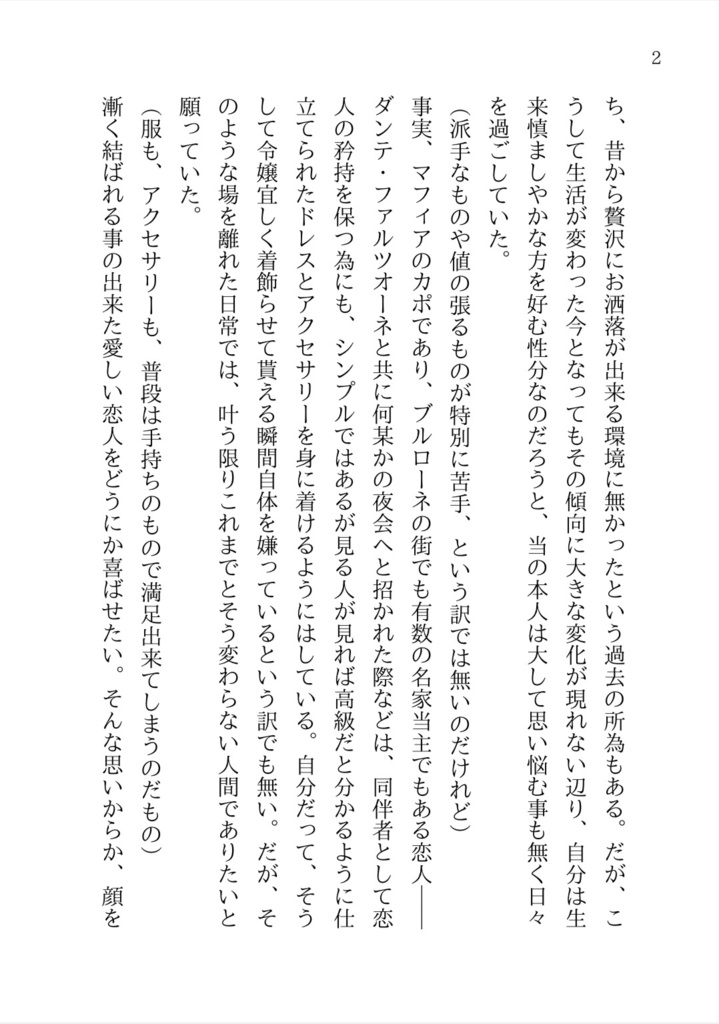 2
ち、昔から贅沢にお洒落が出来る環境に無かったという過去の所為もある。だが、こ
うして生活が変わった今となってもその傾向に大きな変化が現れない辺り、自分は生
来慎ましやかな方を好む性分なのだろうと、当の本人は大して思い悩む事も無く日々
を過ごしていた。
（派手なものや値の張るものが特別に苦手、という訳では無いのだけれど）
事実、マフィアのカポであり、ブルローネの街でも有数の名家当主でもある恋人――
ダンテ・ファルツオーネと共に何某かの夜会へと招かれた際などは、同伴者として恋
人の矜持を保つ為にも、シンプルではあるが見る人が見れば高級だと分かるように仕
立てられたドレスとアクセサリーを身に着けるようにはしている。自分だって、そう
して令嬢宜しく着飾らせて貰える瞬間自体を嫌っているという訳でも無い。だが、そ
のような場を離れた日常では、叶う限りこれまでとそう変わらない人間でありたいと
願っていた。
（服も、アクセサリーも、普段は手持ちのもので満足出来てしまうのだもの）
漸く結ばれる事の出来た愛しい恋人をどうにか喜ばせたい。そんな思いからか、顔を